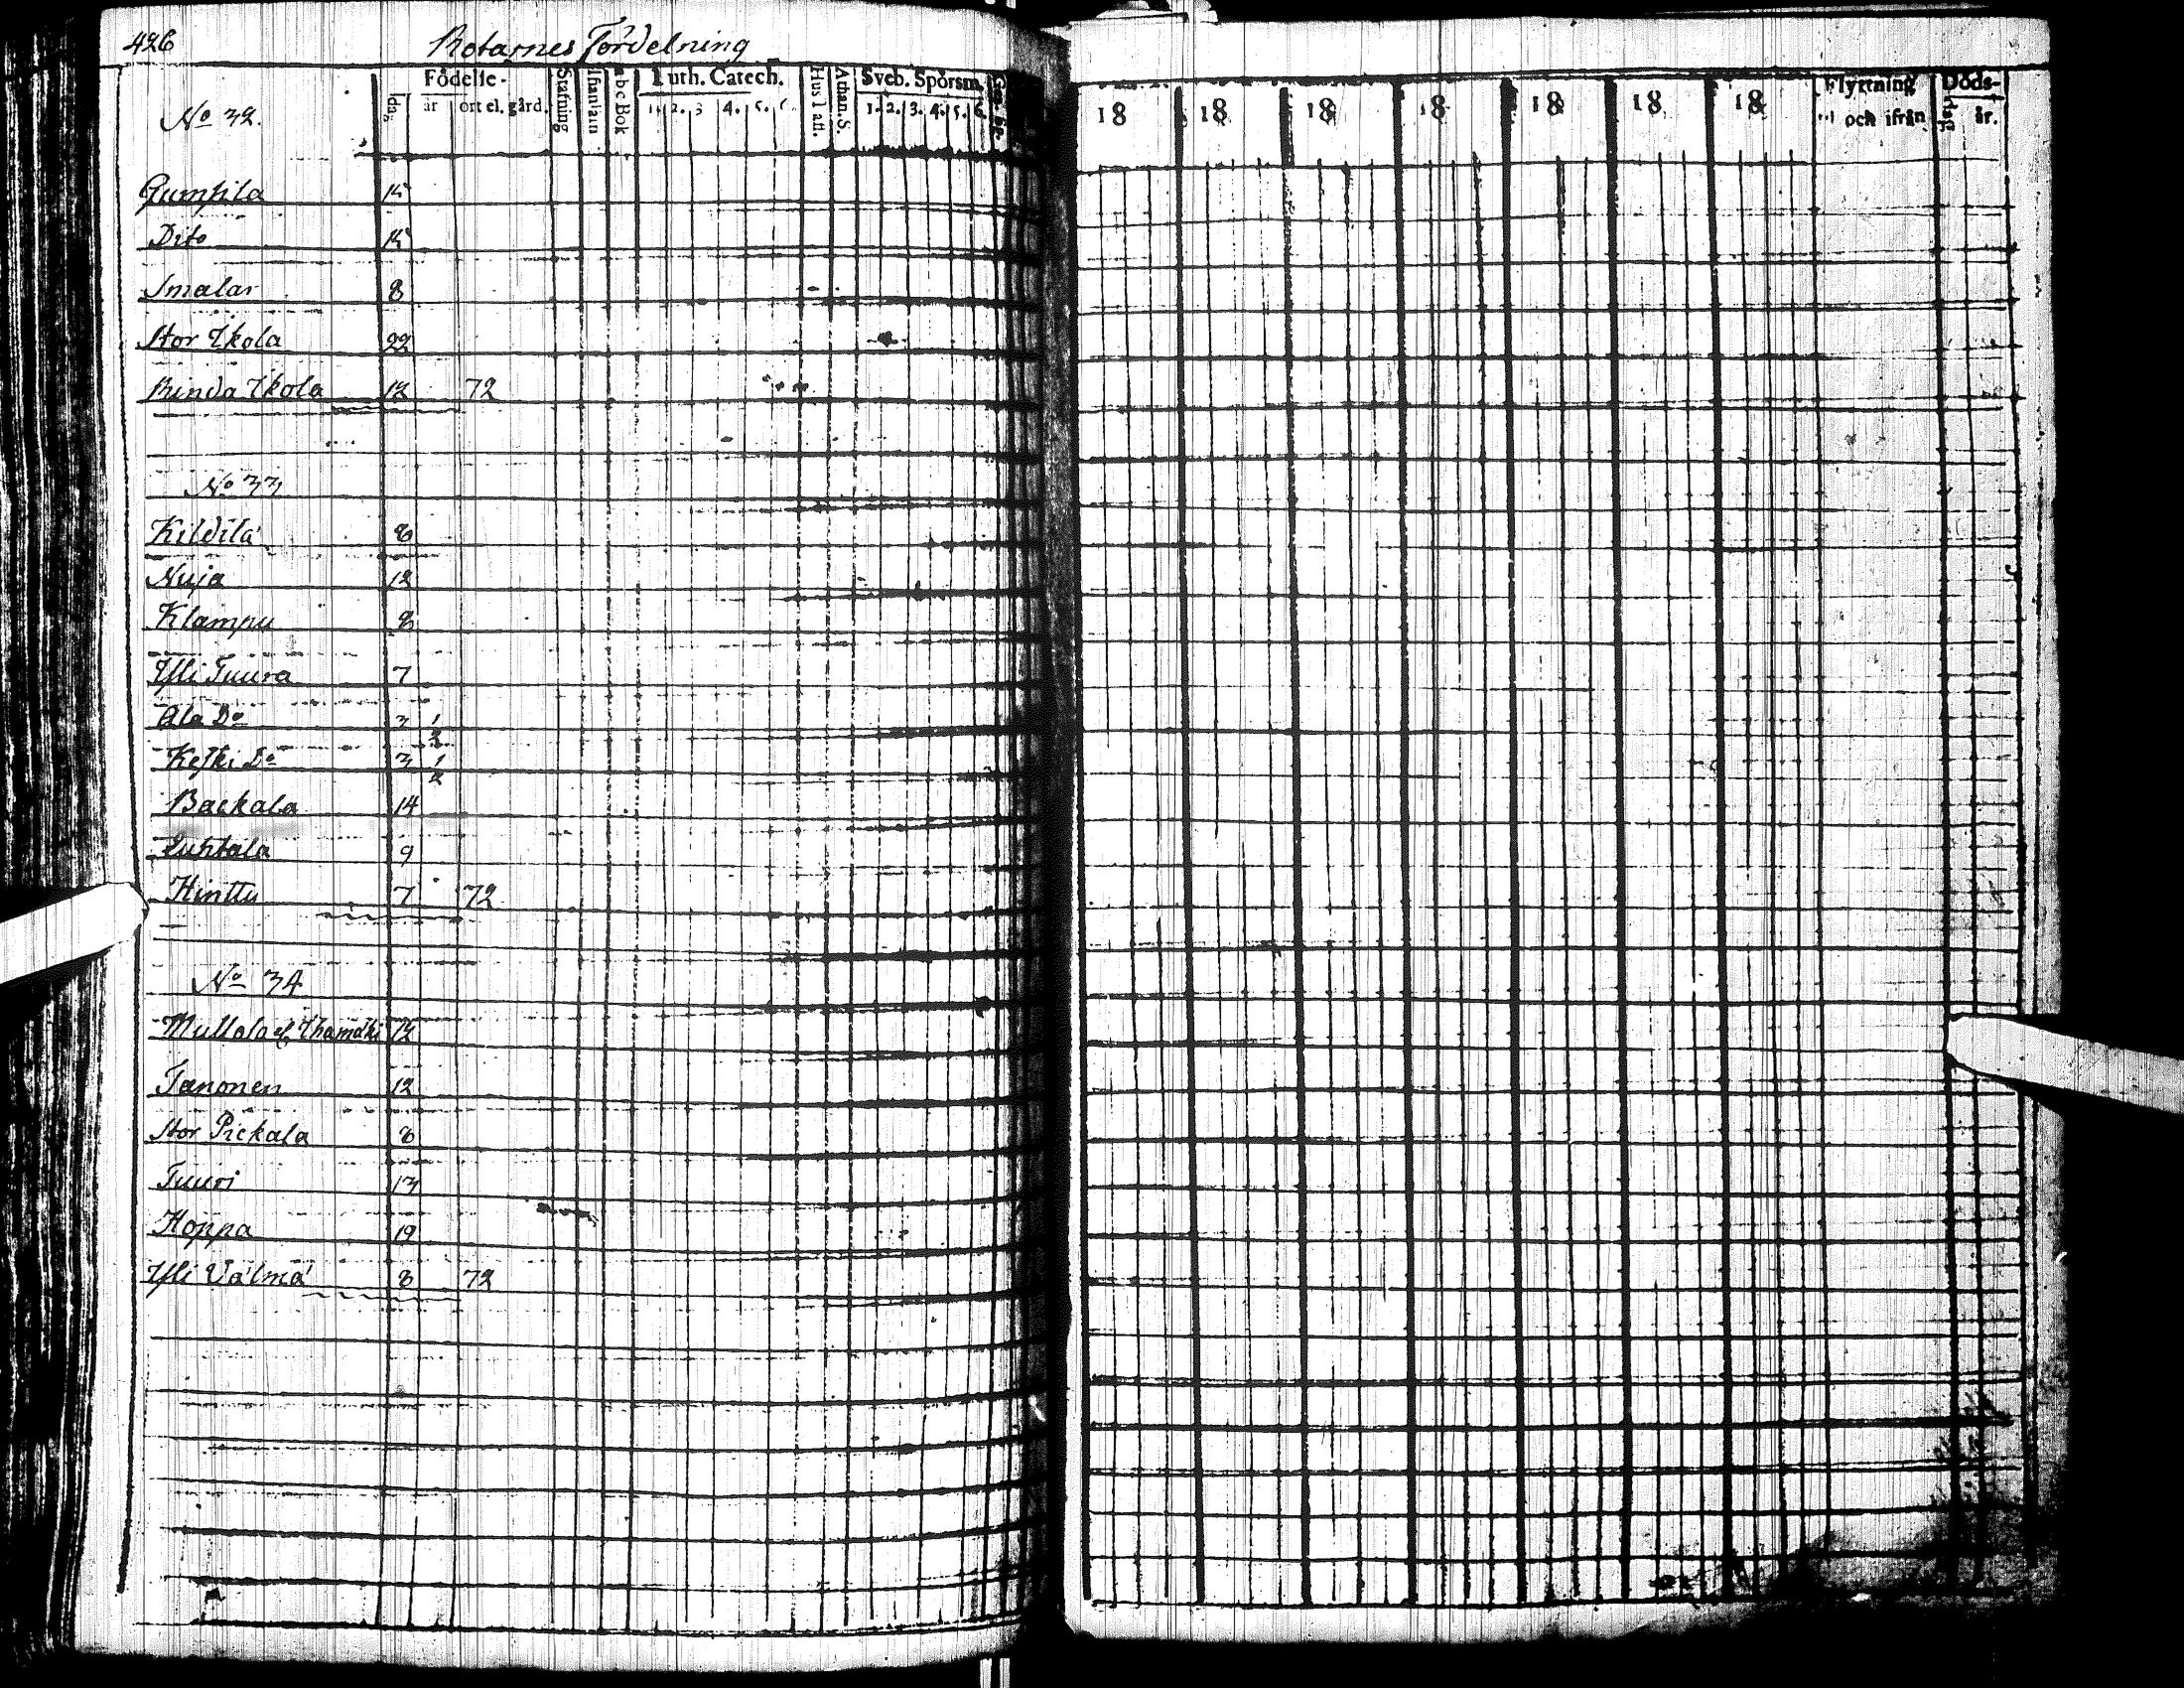 426 Rotarnes Fördelning
No 32. Födelse- Stafning Innanläs abc Bok Luth. Catech. Hus Tafl. Athan. S. Sveb. Spörsm.
dag år ort el. gård. 1. 2. 3 4. 5. 1. 2. 3. 4. 5. 6.
18 18 18 18 18 18 18 Flyttning Döds-
och ifrån dag år.
Gumpila 15
Dito 15
Smalar 8
Stor Ikola 22
Runda Ikola 12 72
No 33
Kildilä 8
Nuja 12
Klampu 8
Yli Tuura 7
Ala Do 3 1/2
Keski Do 3 1/2
Backala 14
Luhtala 9
Hinttu 7 72
No 34
Mullola 12
Tanonen 12
Stor Pickala 8
Tuuri 13
Hoppa 19
Yli Välmä 8 72